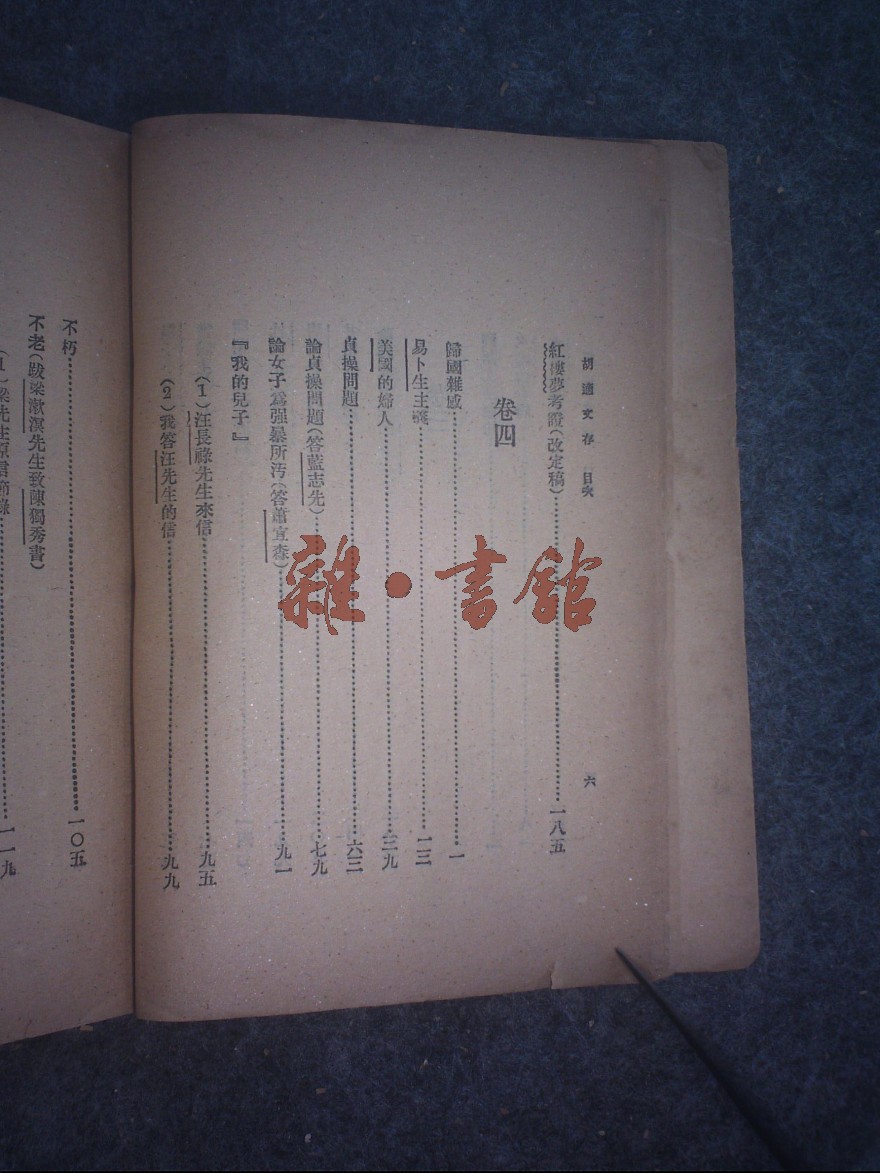 胡適文存　目次
六
紅樓夢考證(改定稿)……一八五
卷四
歸國雜感……一
易卜生主義……一三
美國的婦人……三九
貞操問題……六三
論貞操問題(答藍志先)……七九
論女子爲强暴所汚(答蕭宜森)……九一
『我的兒子』
(1)汪長祿先生來信……九五
(2)我答汪先生的信……九九
不朽……一〇五
不老(跋梁漱溟先生致陳獨秀書)
(1)梁先生原……一一九
雜•書館